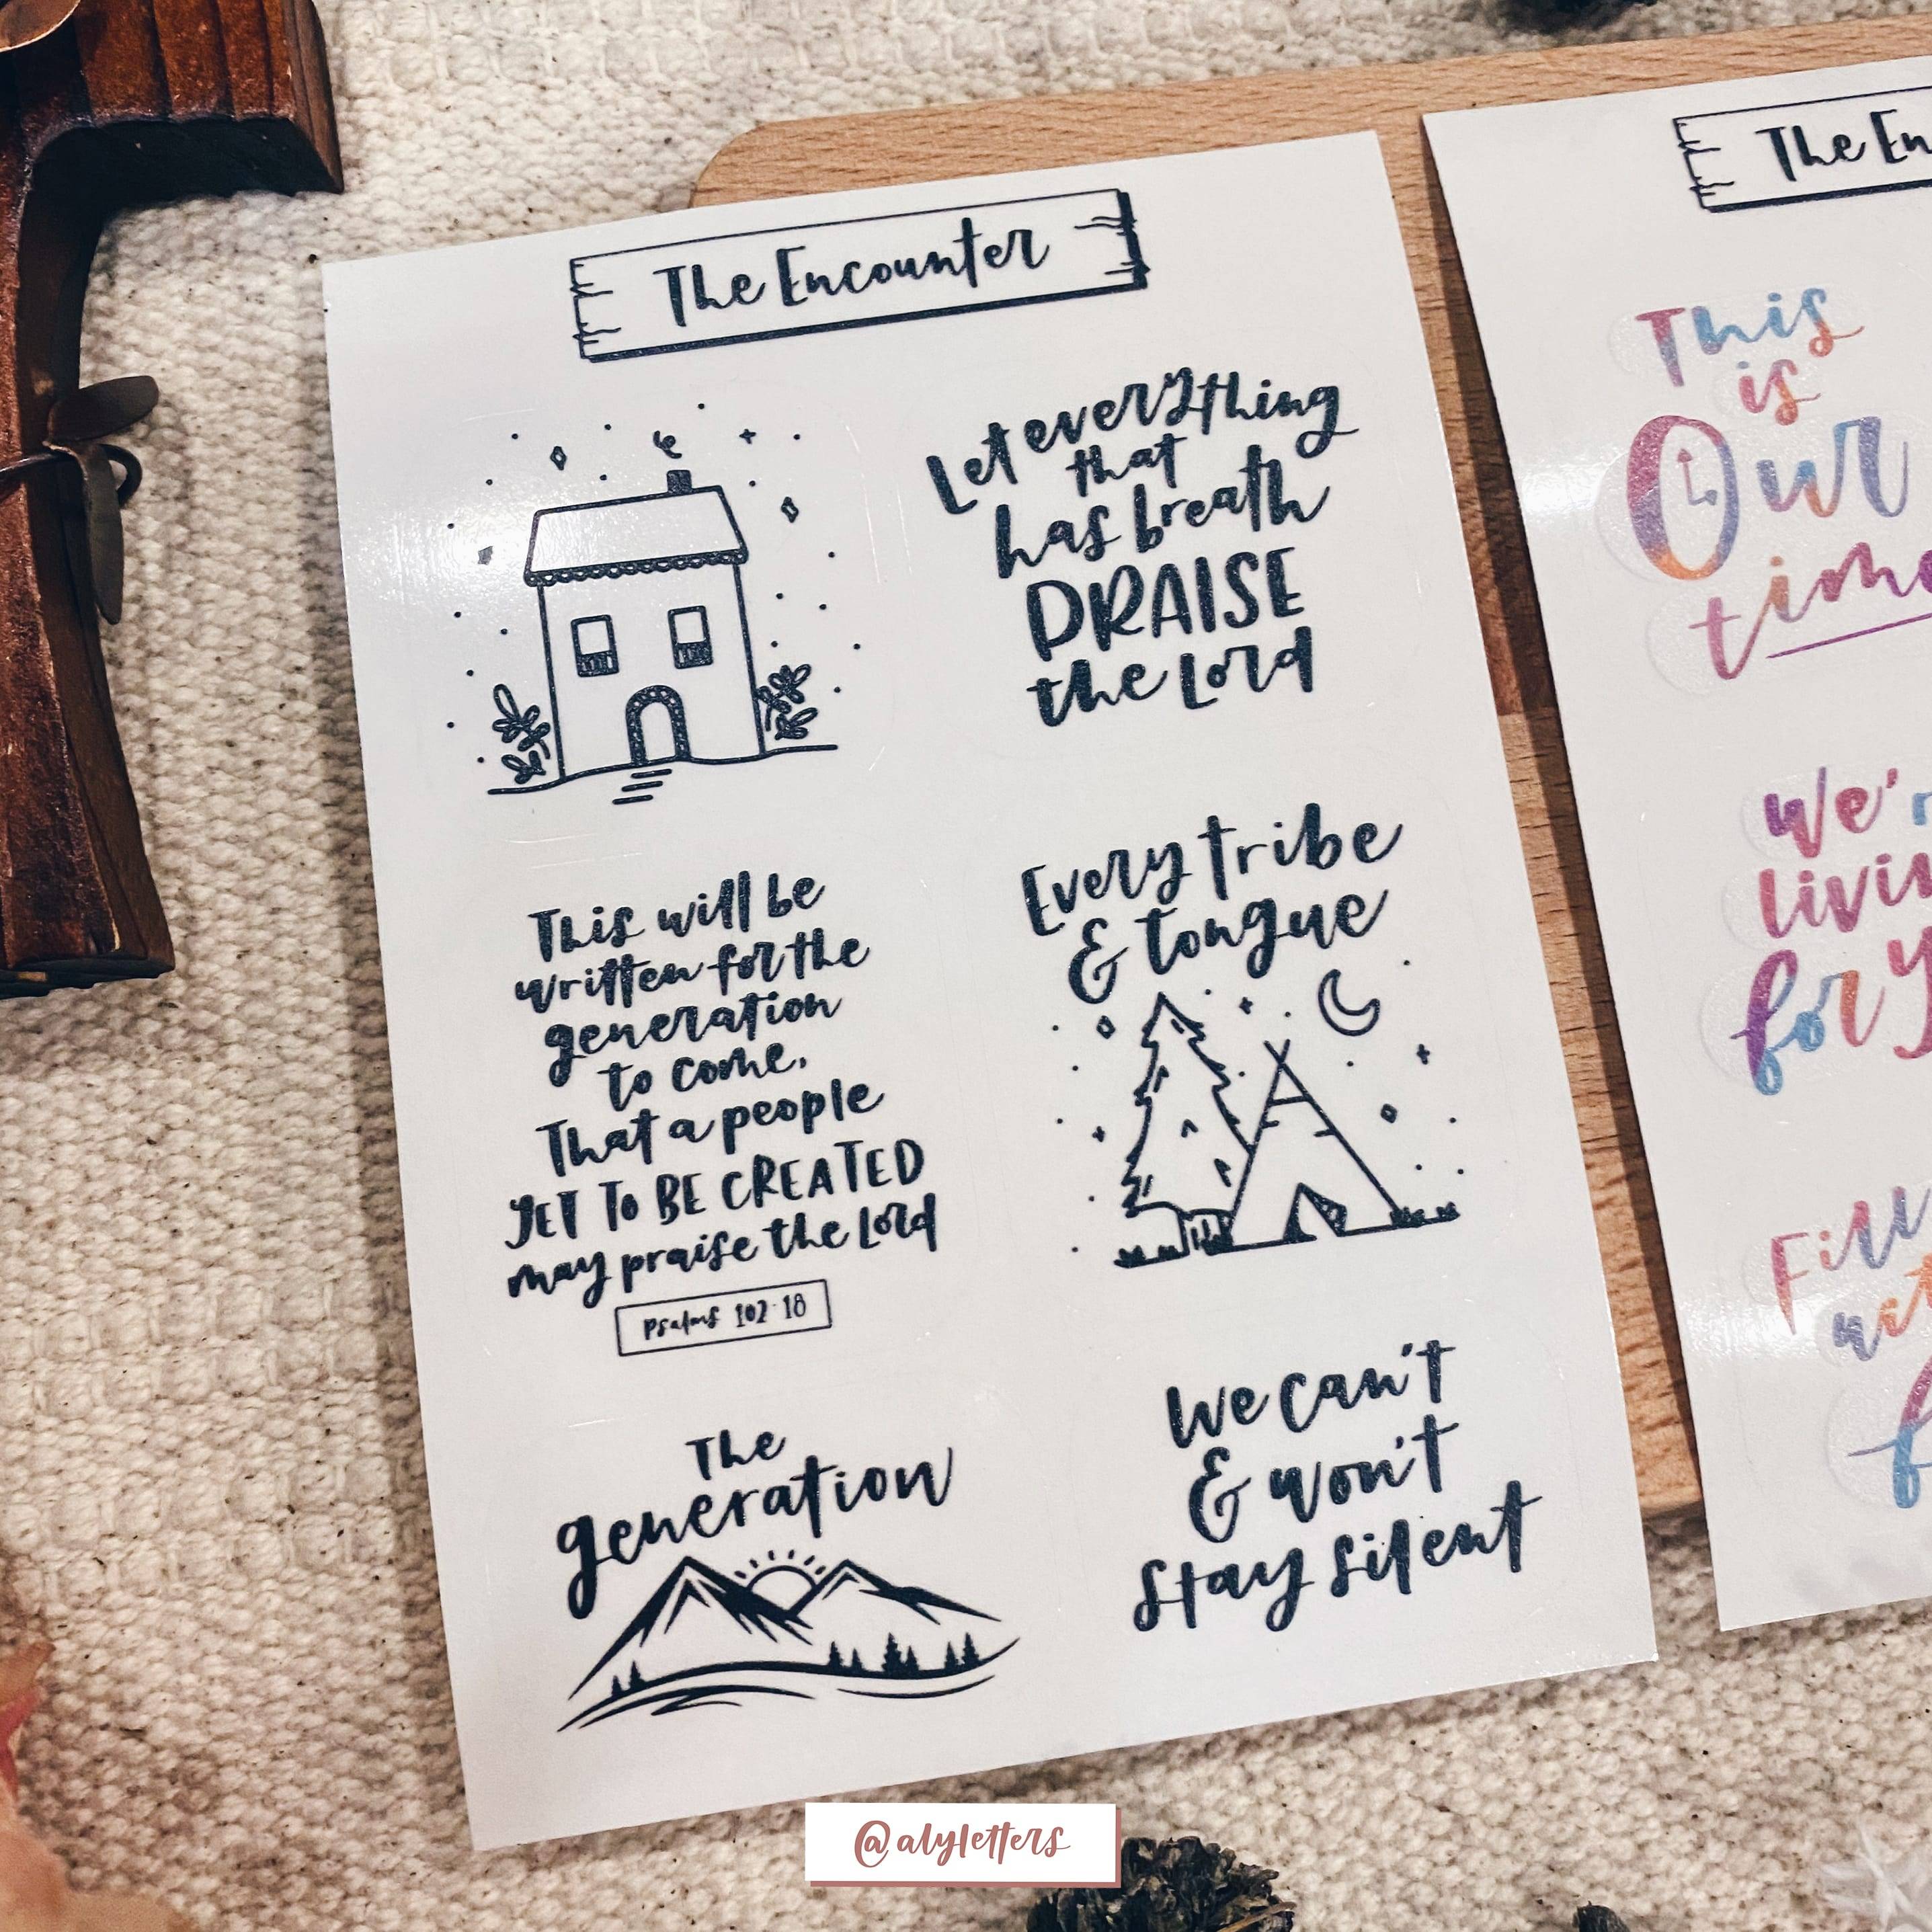 The Encounter
Let everything
that
has breath
PRAISE
the Lord
This will be
written for the
generation
to come,
That a people
YET TO BE CREATED
may praise the Lord
Psalms 102:18
Every tribe
& tongue
The
generation
We can't
& won't
stay silent
The En
This
is
Our
time
We'r
livin
for y
@alyletters